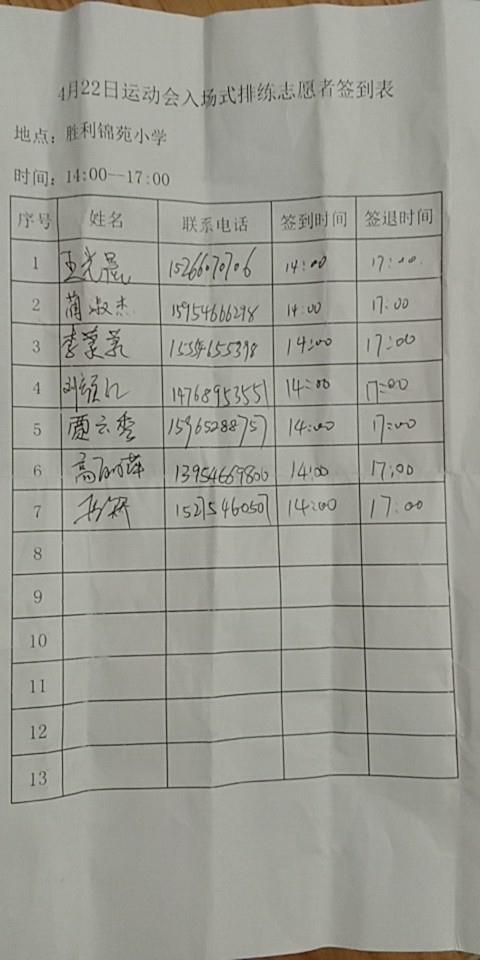 4月22日运动会入场式排练志愿者签到表
地点：胜利锦苑小学
时间：14:00--17:00
序号 姓名 联系电话 签到时间 签退时间
1 15266070706 14:00 17:00
2 蔺淑杰 15954666298 14:00 17:00
3 14:00 17:00
4 14768953551 14:00 17:00
5 贾云香 15965288757 14:00 17:00
6 高丽萍 13954669800 14:00 17:00
7 15275460507 14:00 17:00
8
9
10
11
12
13